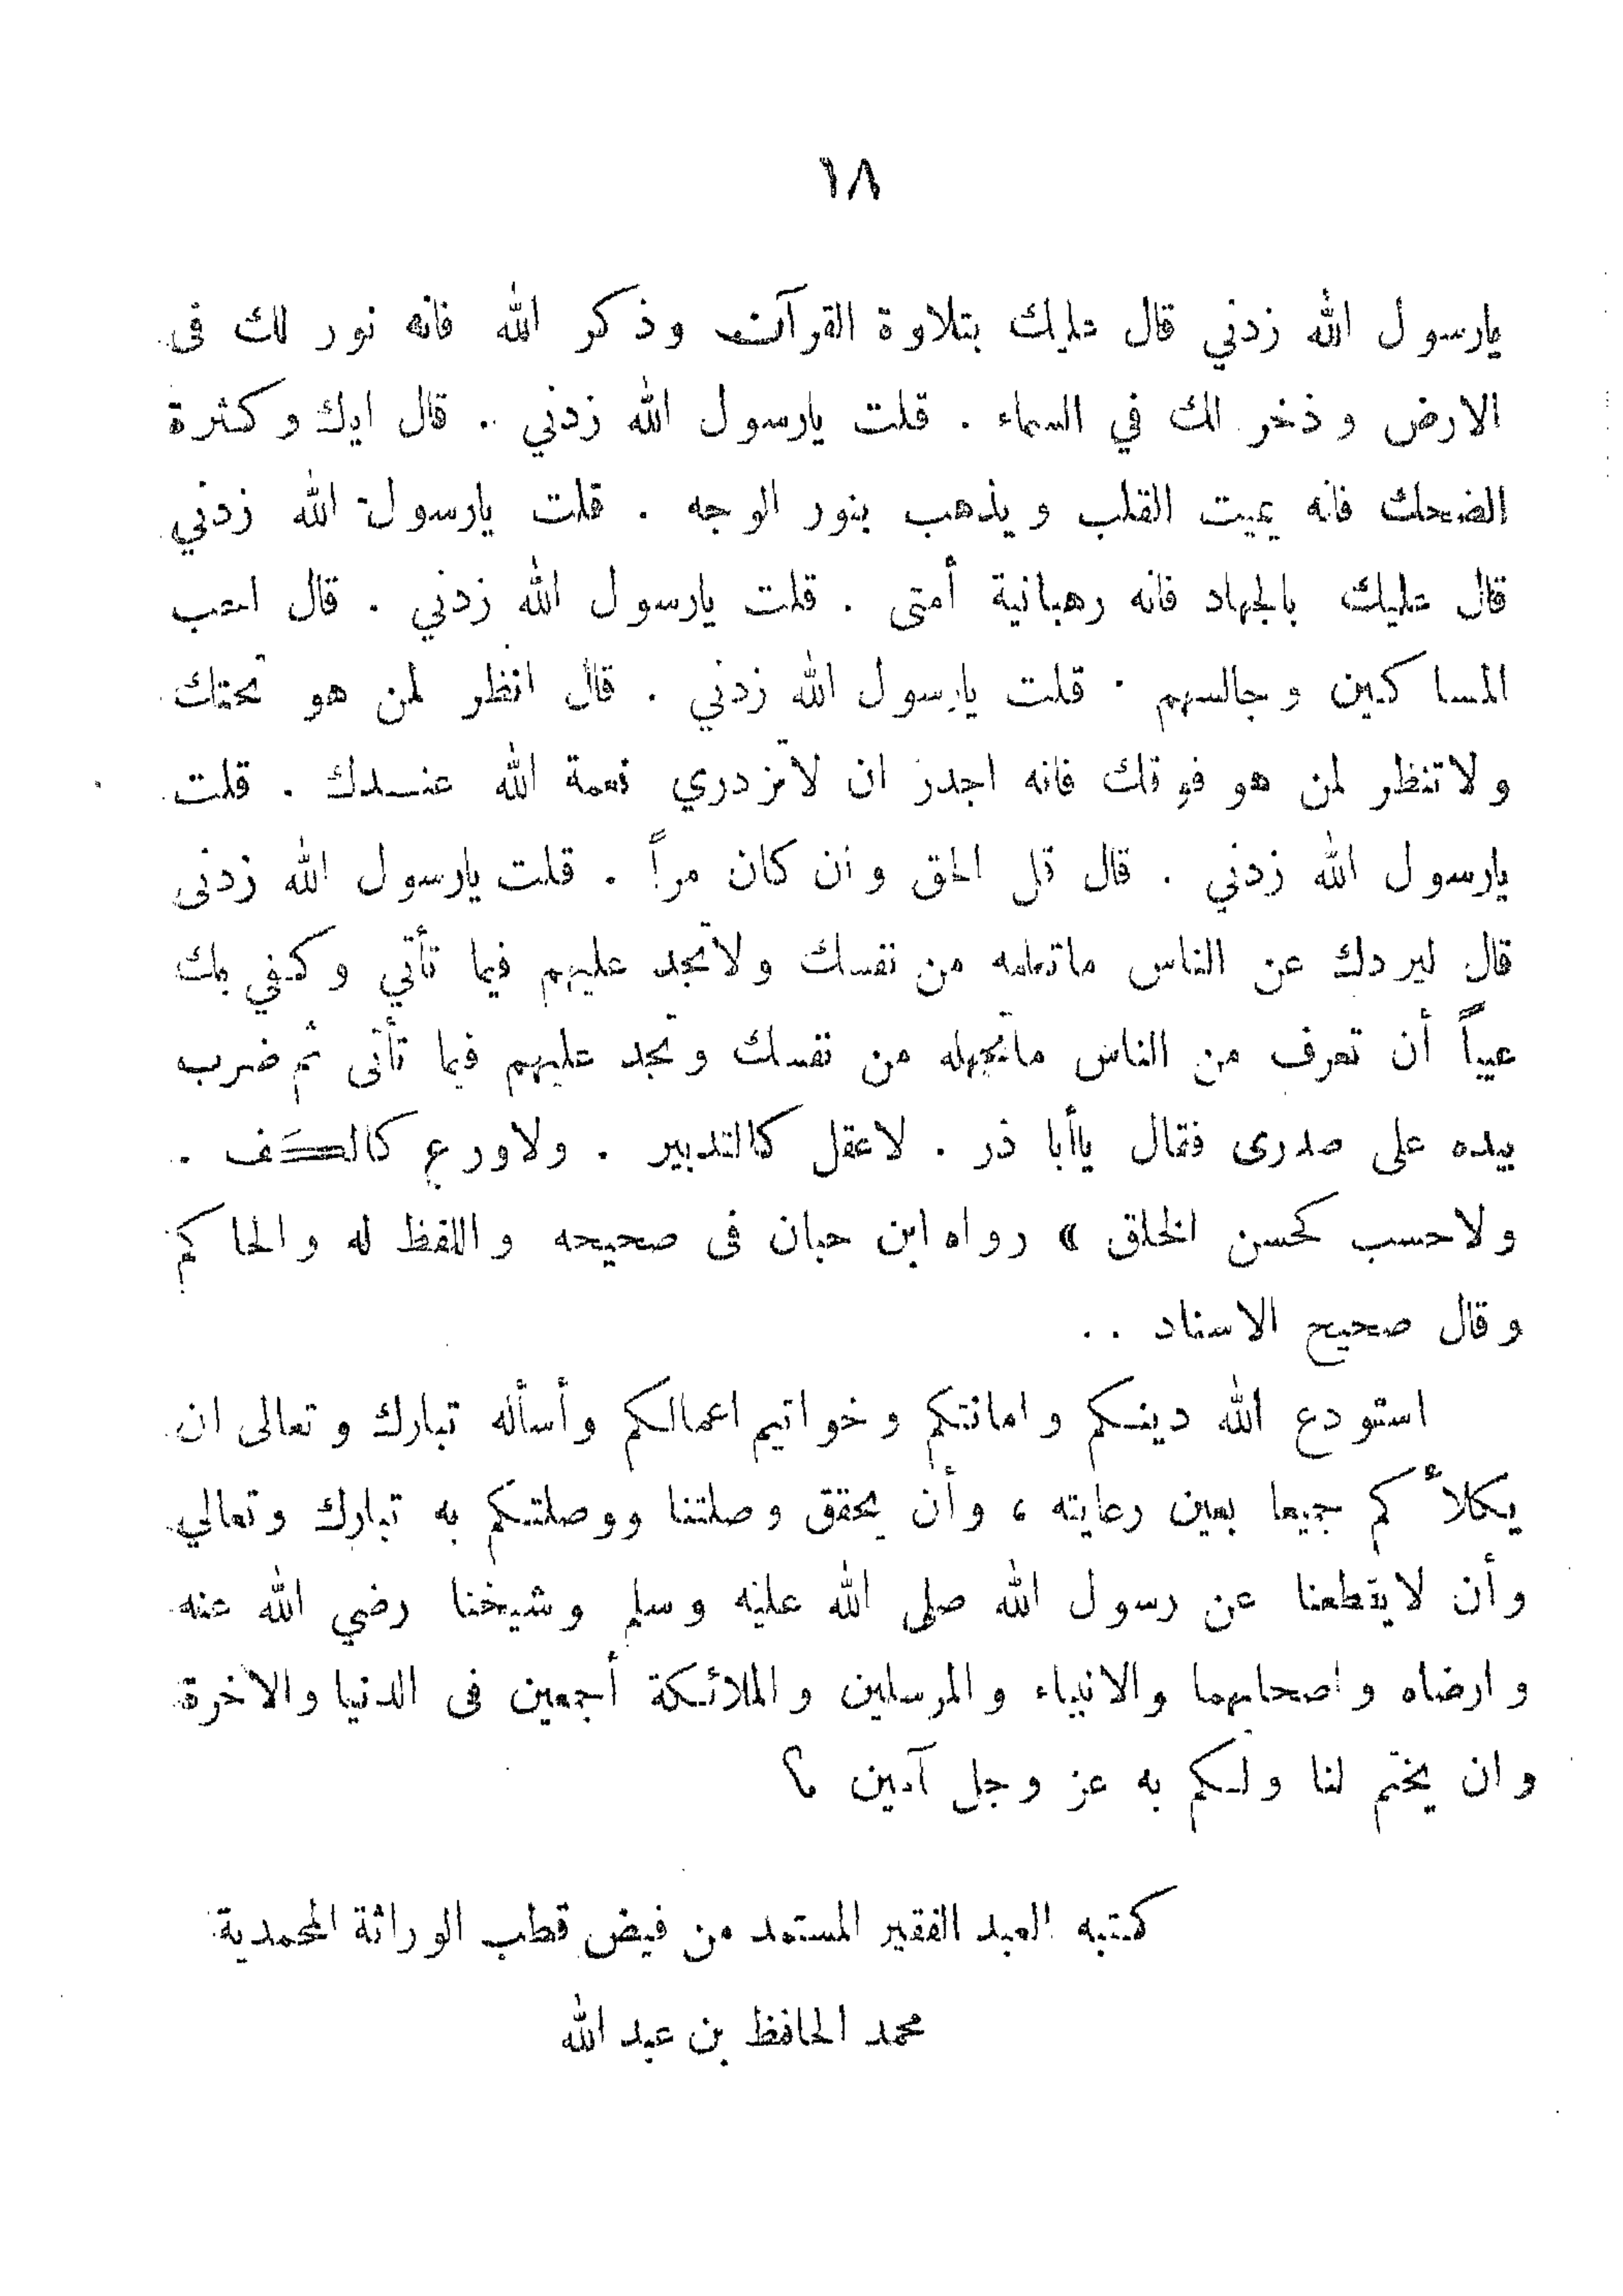 ١٨
يارسول الله زدني قال عليك بتلاوة القرآن وذكر الله فانه نور لك فى
الارض وذخر لك في السماء . قلت يارسول الله زدني .. قال اياك وكثرة
الضحك فانه يميت القلب ويذهب بنور الوجه . قلت يارسول الله زدني
قال عليك بالجهاد فانه رهبانية أمتى . قلت يارسول الله زدني . قال احب
المساكين وجالسهم . قلت يارسول الله زدني . قال انظر لمن هو تحتك
ولاتنظر لمن هو فوقك فانه اجدر ان لاتزدري نعمة الله عنـدك . قلت
يارسول الله زدني . قال قل الحق وان كان مراً . قلت يارسول الله زدنى
قال ليردك عن الناس ماتعلمه من نفسك ولاتجد عليهم فيما تأتي وكفي بك
عيباً أن تعرف من الناس ماتجهله من نفسك وتجد عليهم فيما تأتى ثم ضرب
بيده على صدرى فقال ياأبا ذر . لاعقل كالتدبير . ولاورع كالكَف .
ولاحسب كحسن الخلق » رواه ابن حبان فى صحيحه واللفظ له والحاكم
وقال صحيح الاسناد ..
استودع الله دينكم وامانتكم وخواتيم اعمالكم وأسأله تبارك وتعالى ان
يكلأكم جميعا بعين رعايته ، وأن يحقق وصلتنا ووصلتكم به تبارك وتعالي
وأن لايقطعنا عن رسول الله صلى الله عليه وسلم وشيخنا رضي الله عنه
وارضاه واصحابهما والانبياء والمرسلين والملائكة أجمعين فى الدنيا والاخرة
وان يختم لنا ولكم به عز وجل آمين ؟
كتبه العبد الفقير المستمد من فيض قطب الوراثة المحمدية
محمد الحافظ بن عبد الله